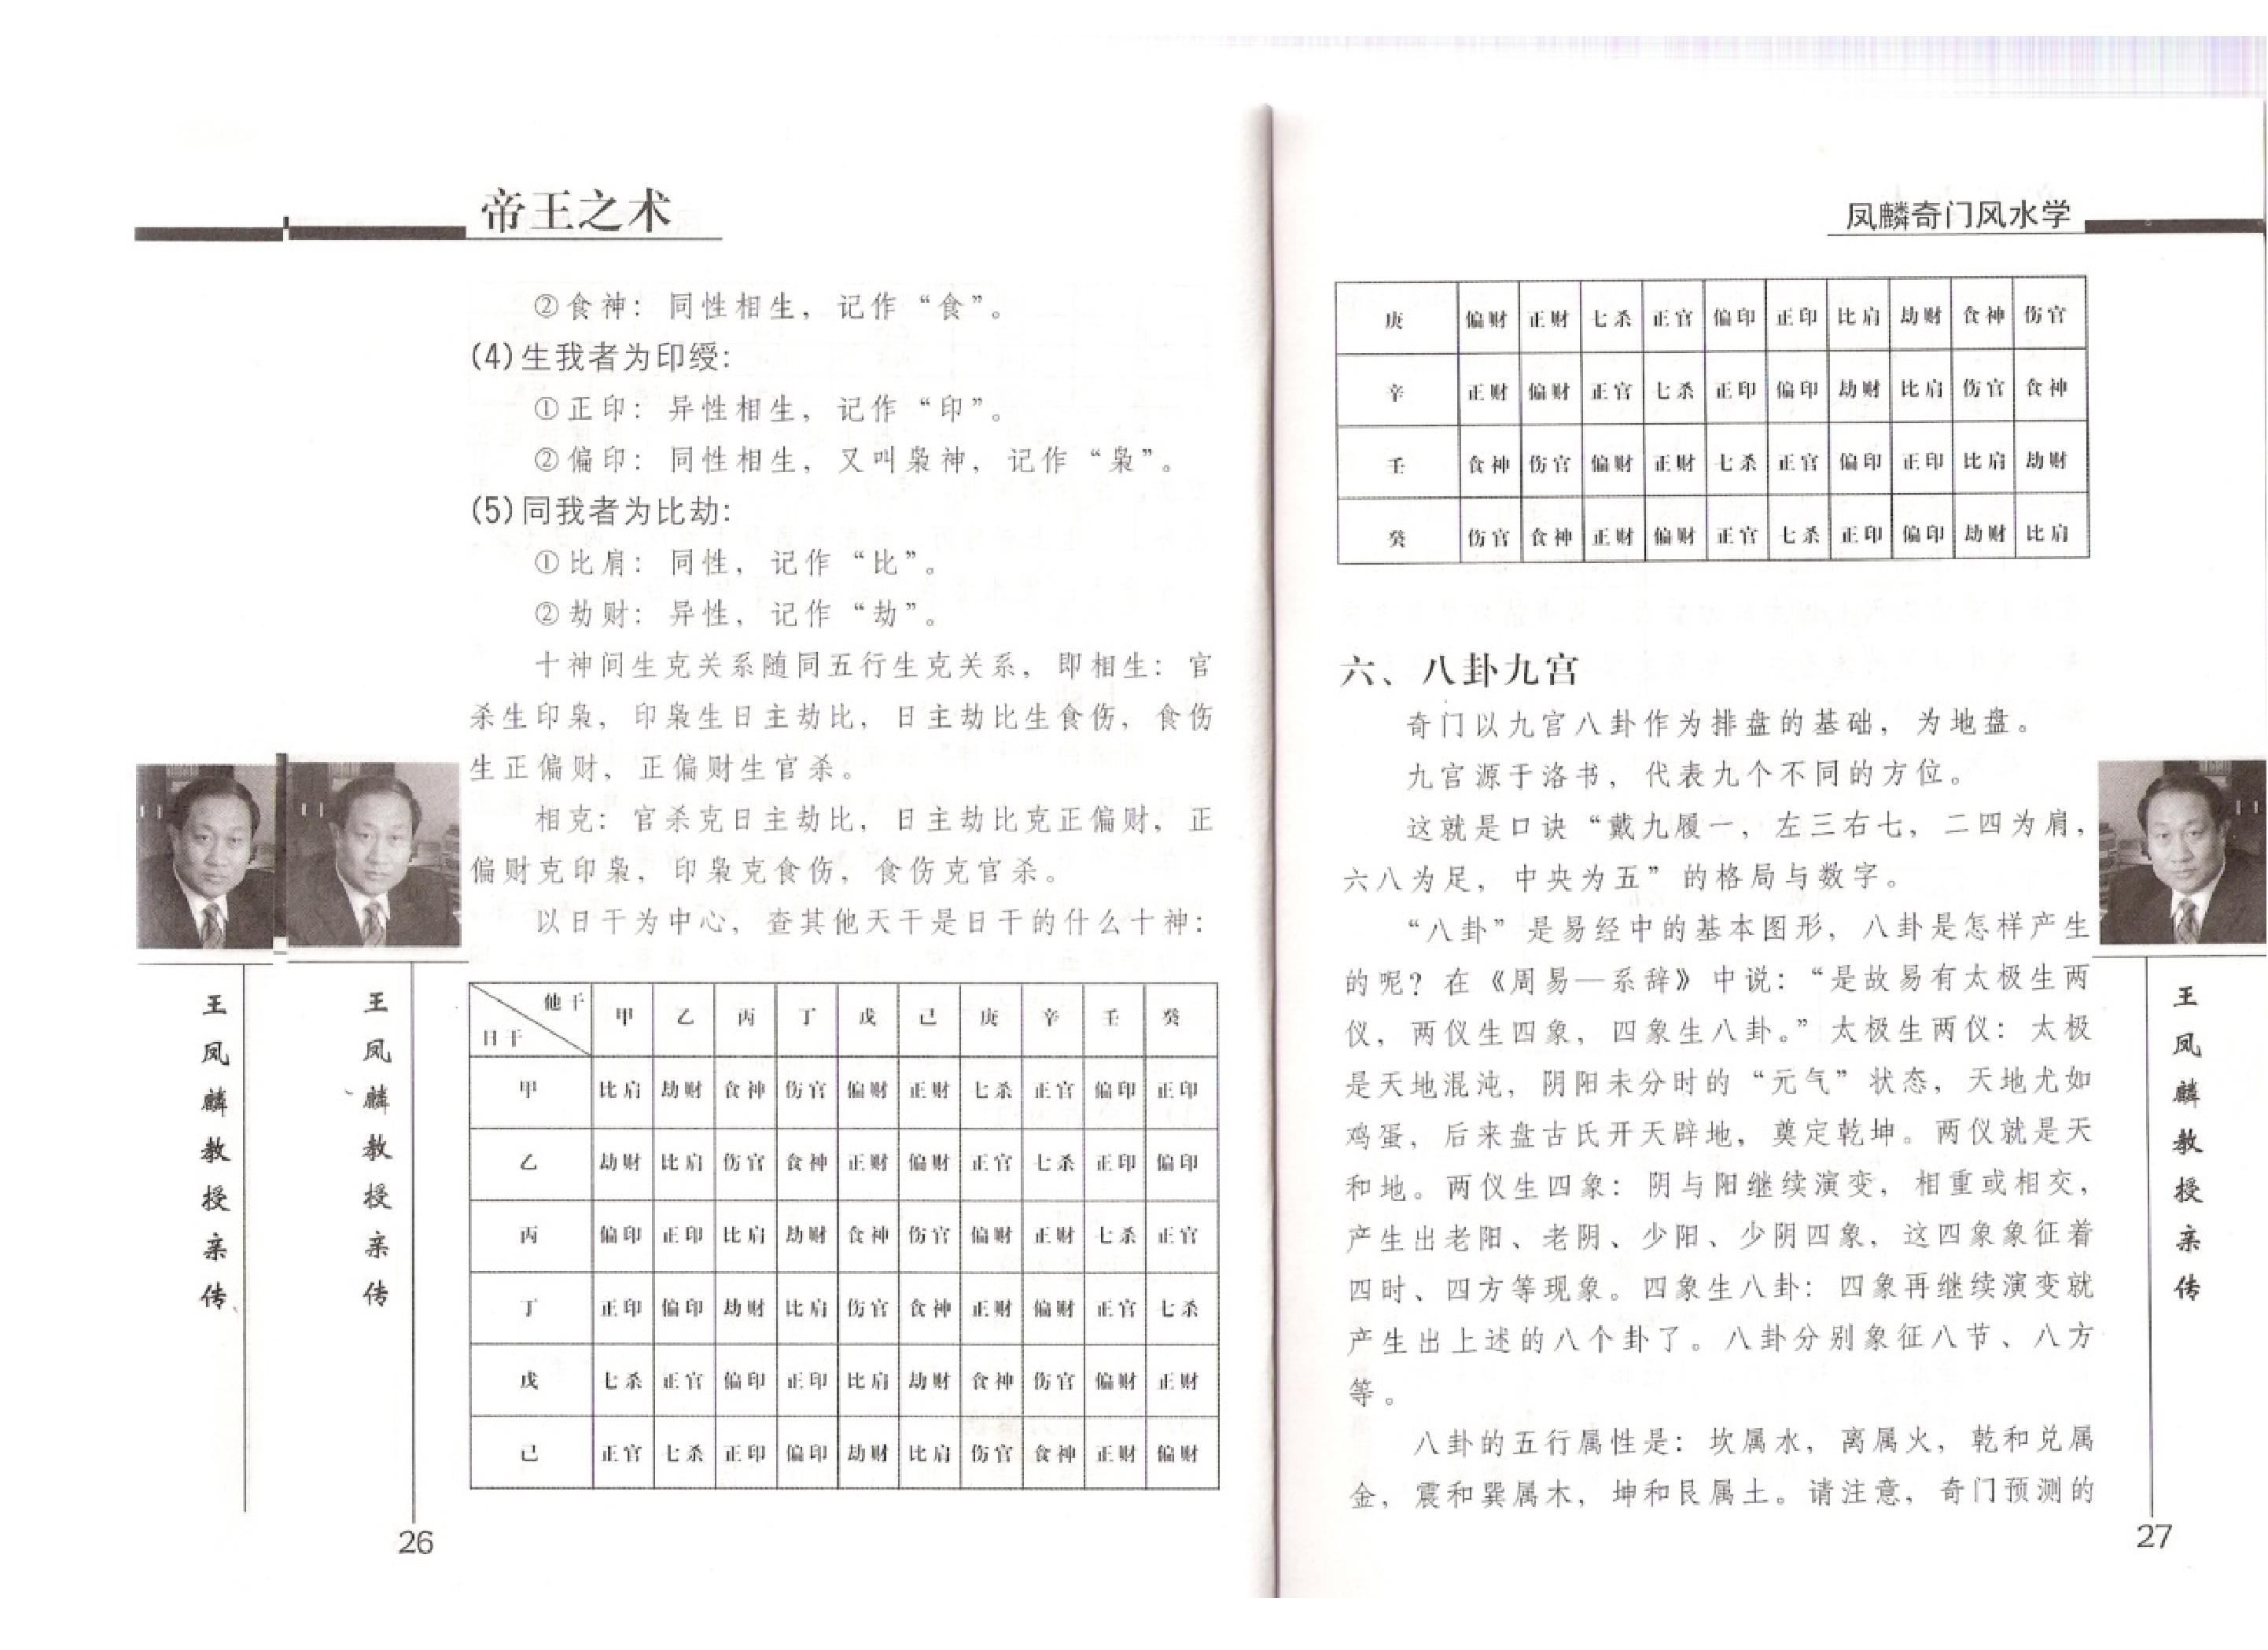 帝王之术
②食神：同性相生，记作“食”。
(4)生我者为印绶：
①正印：异性相生，记作“印”。
②偏印：同性相生，又叫枭神，记作“枭”。
(5)同我者为比劫：
①比肩：同性，记作“比”。
②劫财：异性，记作“劫”。
十神间生克关系随同五行生克关系，即相生：官
杀生印枭，印枭生日主劫比，日主劫比生食伤，食伤
生正偏财，正偏财生官杀。
相克：官杀克日主劫比，日主劫比克正偏财，正
偏财克印枭，印枭克食伤，食伤克官杀。
以日干为中心，查其他天干是日干的什么十神：
他干 日干 甲 乙 丙 丁 戊 己 庚 辛 壬 癸
甲 比肩 劫财 食神 伤官 偏财 正财 七杀 正官 偏印 正印
乙 劫财 比肩 伤官 食神 正财 偏财 正官 七杀 正印 偏印
丙 偏印 正印 比肩 劫财 食神 伤官 偏财 正财 七杀 正官
丁 正印 偏印 劫财 比肩 伤官 食神 正财 偏财 正官 七杀
戊 七杀 正官 偏印 正印 比肩 劫财 食神 伤官 偏财 正财
己 正官 七杀 正印 偏印 劫财 比肩 伤官 食神 正财 偏财
王凤麟教授亲传
王凤麟教授亲传
26
凤麟奇门风水学
庚 偏财 正财 七杀 正官 偏印 正印 比肩 劫财 食神 伤官
辛 正财 偏财 正官 七杀 正印 偏印 劫财 比肩 伤官 食神
壬 食神 伤官 偏财 正财 七杀 正官 偏印 正印 比肩 劫财
癸 伤官 食神 正财 偏财 正官 七杀 正印 偏印 劫财 比肩
六、八卦九宫
奇门以九宫八卦作为排盘的基础，为地盘。
九宫源于洛书，代表九个不同的方位。
这就是口诀“戴九履一，左三右七，二四为肩，
六八为足，中央为五”的格局与数字。
“八卦”是易经中的基本图形，八卦是怎样产生
的呢？在《周易—系辞》中说：“是故易有太极生两
仪，两仪生四象，四象生八卦。”太极生两仪：太极
是天地混沌，阴阳未分时的“元气”状态，天地尤如
鸡蛋，后来盘古氏开天辟地，奠定乾坤。两仪就是天
和地。两仪生四象：阴与阳继续演变，相重或相交，
产生出老阳、老阴、少阳、少阴四象，这四象象征着
四时、四方等现象。四象生八卦：四象再继续演变就
产生出上述的八个卦了。八卦分别象征八节、八方
等。
八卦的五行属性是：坎属水，离属火，乾和兑属
金，震和巽属木，坤和艮属土。请注意，奇门预测的
王凤麟教授亲传
27